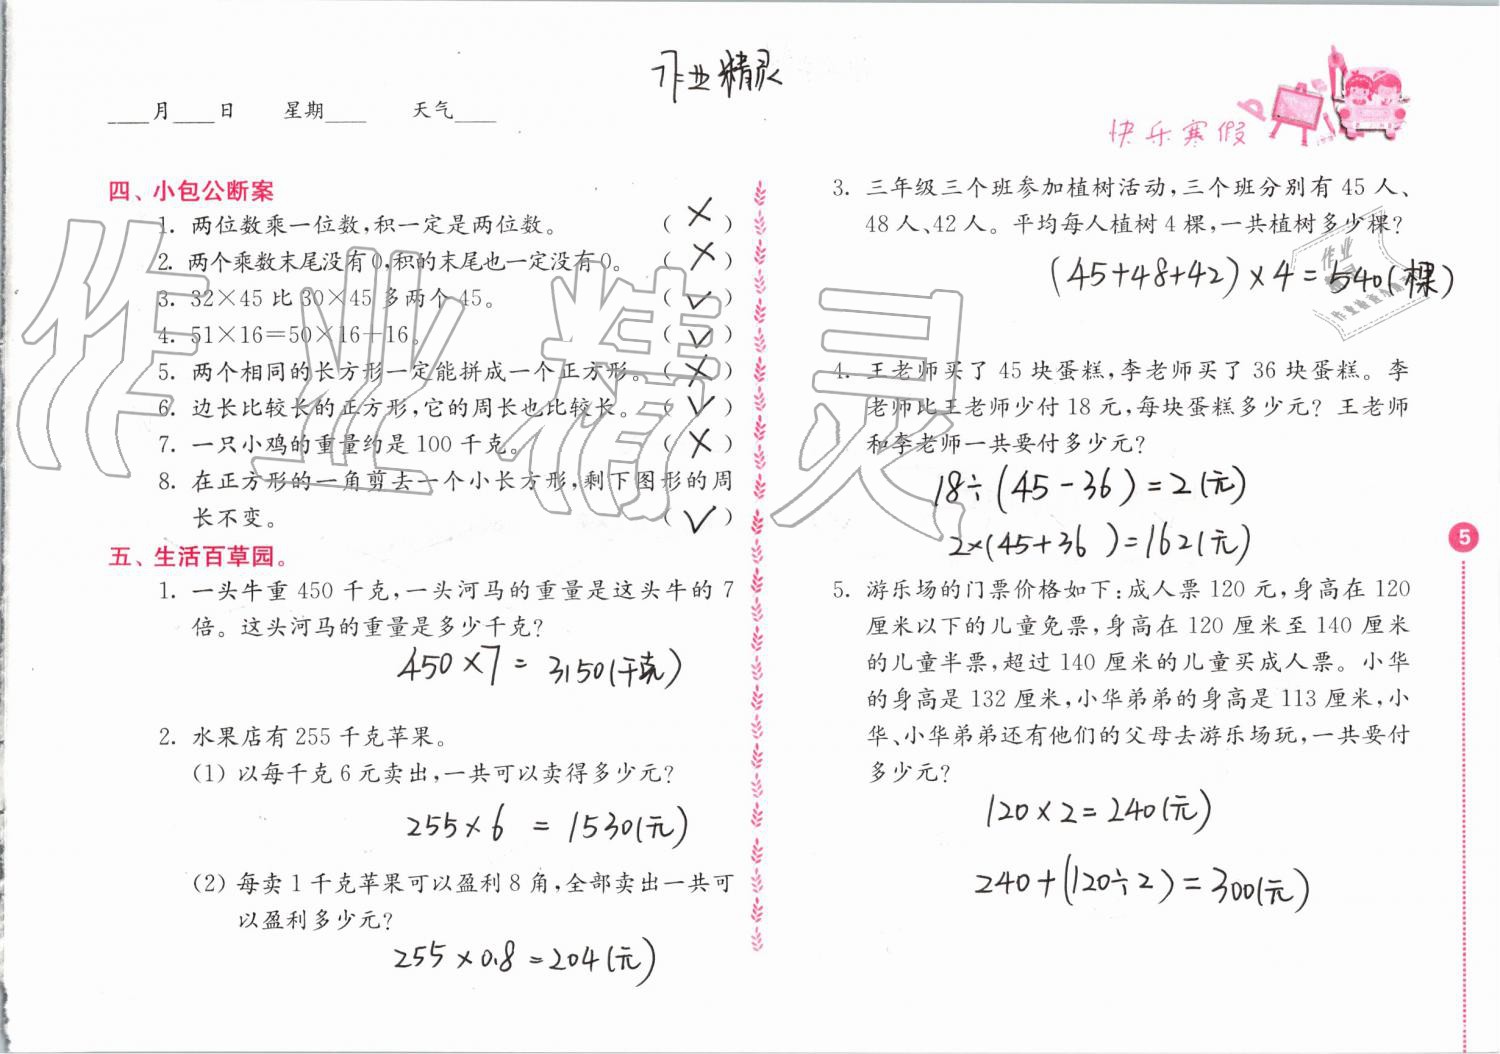 作业精灵
____月____日 星期____ 天气____
快乐寒假
四、小包公断案
1. 两位数乘一位数,积一定是两位数。 ( × )
2. 两个乘数末尾没有0,积的末尾也一定没有0。 ( × )
3. 32×45比30×45多两个45。 ( √ )
4. 51×16=50×16+16。 ( √ )
5. 两个相同的长方形一定能拼成一个正方形。 ( × )
6. 边长比较长的正方形,它的周长也比较长。 ( √ )
7. 一只小鸡的重量约是100千克。 ( × )
8. 在正方形的一角剪去一个小长方形,剩下图形的周
长不变。 ( √ )
五、生活百草园。
1. 一头牛重450千克,一头河马的重量是这头牛的7
倍。这头河马的重量是多少千克?
450×7=3150(千克)
2. 水果店有255千克苹果。
(1) 以每千克6元卖出,一共可以卖得多少元?
255×6=1530(元)
(2) 每卖1千克苹果可以盈利8角,全部卖出一共可
以盈利多少元?
255×0.8=204(元)
3. 三年级三个班参加植树活动,三个班分别有45人、
48人、42人。平均每人植树4棵,一共植树多少棵?
(45+48+42)×4=540(棵)
4. 王老师买了45块蛋糕,李老师买了36块蛋糕。李
老师比王老师少付18元,每块蛋糕多少元? 王老师
和李老师一共要付多少元?
18÷(45-36)=2(元)
2×(45+36)=162(元)
5. 游乐场的门票价格如下:成人票120元,身高在120
厘米以下的儿童免票,身高在120厘米至140厘米
的儿童半票,超过140厘米的儿童买成人票。小华
的身高是132厘米,小华弟弟的身高是113厘米,小
华、小华弟弟还有他们的父母去游乐场玩,一共要付
多少元?
120×2=240(元)
240+(120÷2)=300(元)
5
作业精灵